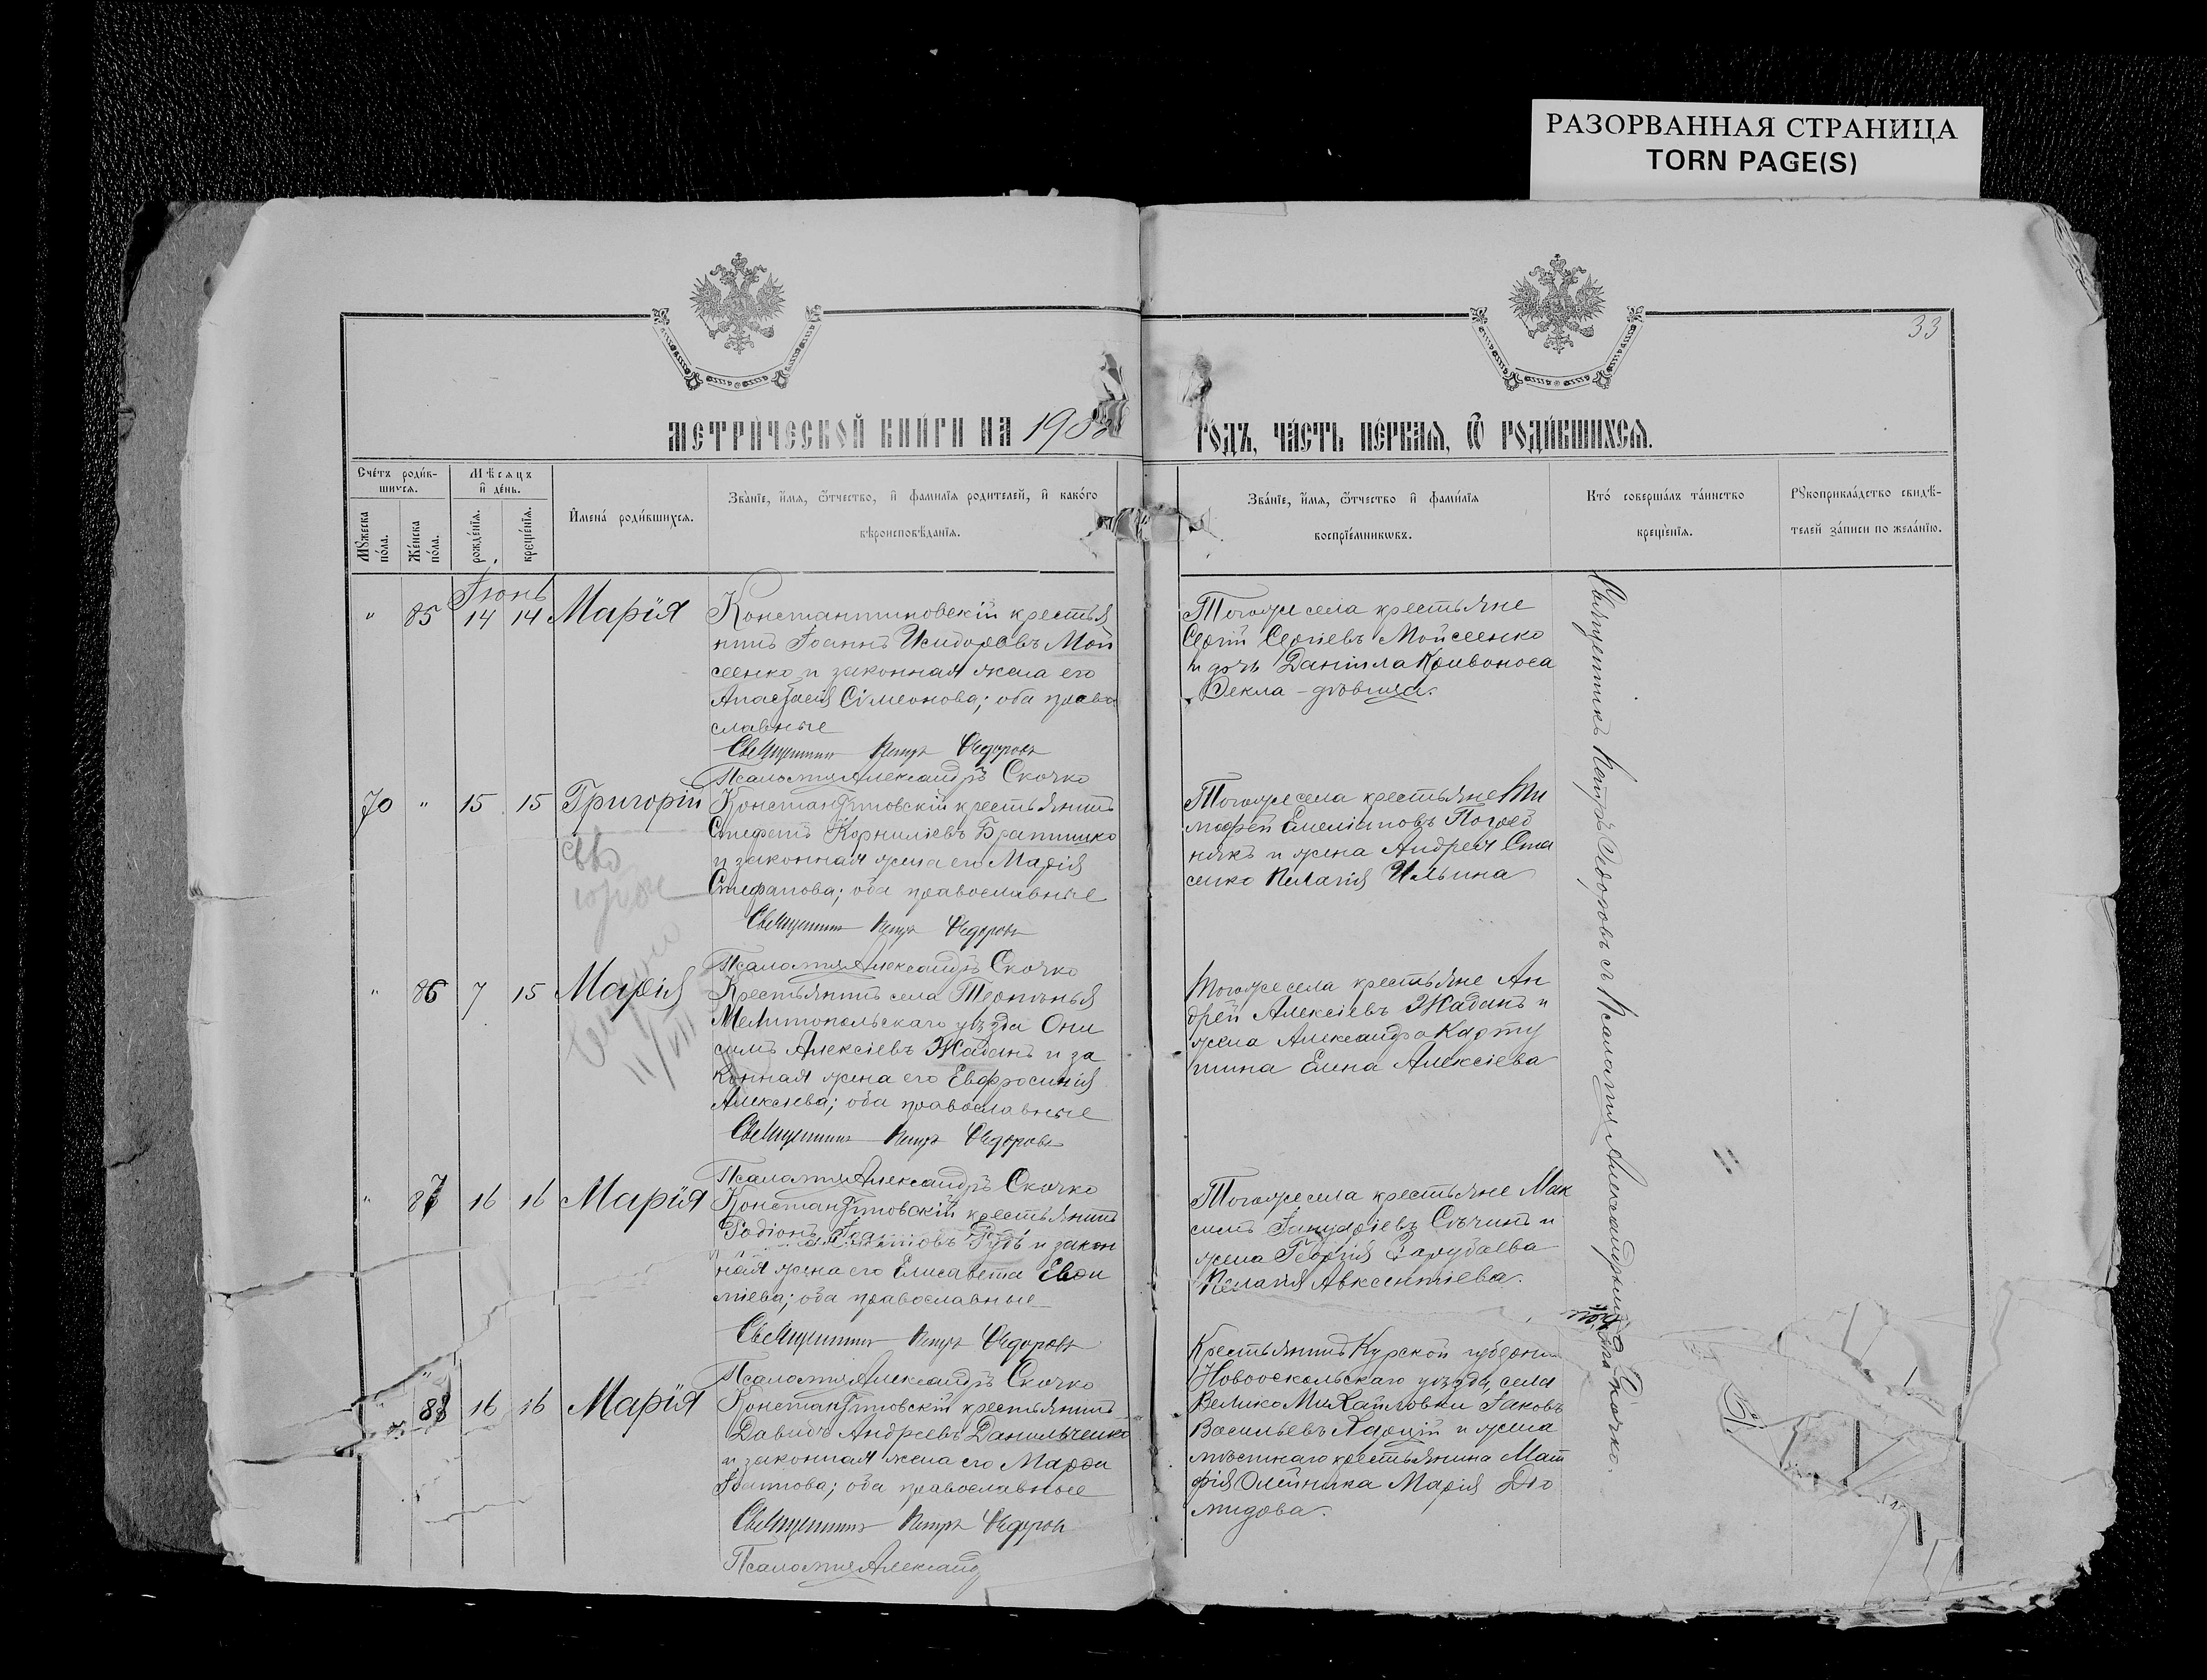 РАЗОРВАННАЯ СТРАНИЦА
TORN PAGE(S)
33
МЕТРИ́ЧЕСКОЙ КНИ́ГИ НА 190
ГОДЪ, ЧА́СТЬ ПЕ́РВАЯ, Ѿ РОДИ́ВШИХСЯ.
Сче́тъ роди́в-
шихся.
Мꙋжеска по́ла.
Же́нска по́ла.
Мѣсяцъ и де́нь.
рожде́нїя.
креще́нїя.
Имена́ роди́вшихся.
Зва́нїе, и́мя, ѻ́тчество, и фами́лїя родителей, и како́го
вѣроисповѣ́данїя.
Зва́нїе, и́мя, ѻ́тчество и фами́лїя
воспрїе́мникѡвъ.
Кто́ соверша́лъ та́инство
креще́нїя.
Рꙋкоприкла́дство свидѣ́-
телей за́писи по жела́нїю.
Іюнь
" 85 14 14 Марія
Константиновскій крестья
нинъ Іоаннъ Исидоровъ Мой
сеенко и законная жена его
Анастасія Сімеонова; оба право
славные
Священникъ Петръ Ѳедоровъ
Псаломщ Александръ Скочко
Тогоже села крестьяне
Сергій Сергіевъ Мойсеенко
и дочь Даніила Кривоноса
Ѳекла - дѣвица.
70 " 15 15 Григорій
Константиновскій крестьянинъ
Стефанъ Корниліевъ Братишко
и законная жена его Марія
Стефанова; оба православные
Священникъ Петръ Ѳедоровъ
Псаломщ Александръ Скочко
Тогоже села крестьяне Ти
мофей Емеліановъ Погреб
някъ и жена Андрея Ста
сенко Пелагія Ильина
св-во
11/VII
" 86 7 15 Марія
Крестьянинъ села
Мелитопольскаго уѣзда Они
симъ Алексіевъ Жаданъ и за
конная жена его Евфросинія
Алексіева; оба православные
Священникъ Петръ Ѳедоровъ
Псаломщ Александръ Скочко
Тогоже села крестьяне Ан
дрей Алексіевъ Жаданъ и
жена Александра Карту
шина Елена Алексіева
" 87 16 16 Марія
Константиновскій крестьянинъ
Родіонъ и закон
ная жена его Елисавета Евѳи
міева; оба православные
Священникъ Петръ Ѳедоровъ
Псаломщ Александръ Скочко
Тогоже села крестьяне Мак
симъ Іануаріевъ Сѣчинъ и
жена Георгія Зарубаева
Пелагія Авксентіева.
" 88 16 16 Марія
Константиновскій крестьянинъ
Давидъ Андреевъ Данильченко
и законная жена его Марѳа
Іоаннова; оба православные
Священникъ Петръ Ѳедоровъ
Псаломщ Александ
Крестьянинъ Курской губерніи
Новооскольскаго уѣзда, села
Велико Михайловки Іаковъ
Васильевъ и жена
мѣстнаго крестьянина Мат
фія Олейника Марія Діо
мидова.
Священникъ Петръ Ѳедоровъ съ Псаломщ Александромъ Скочко.